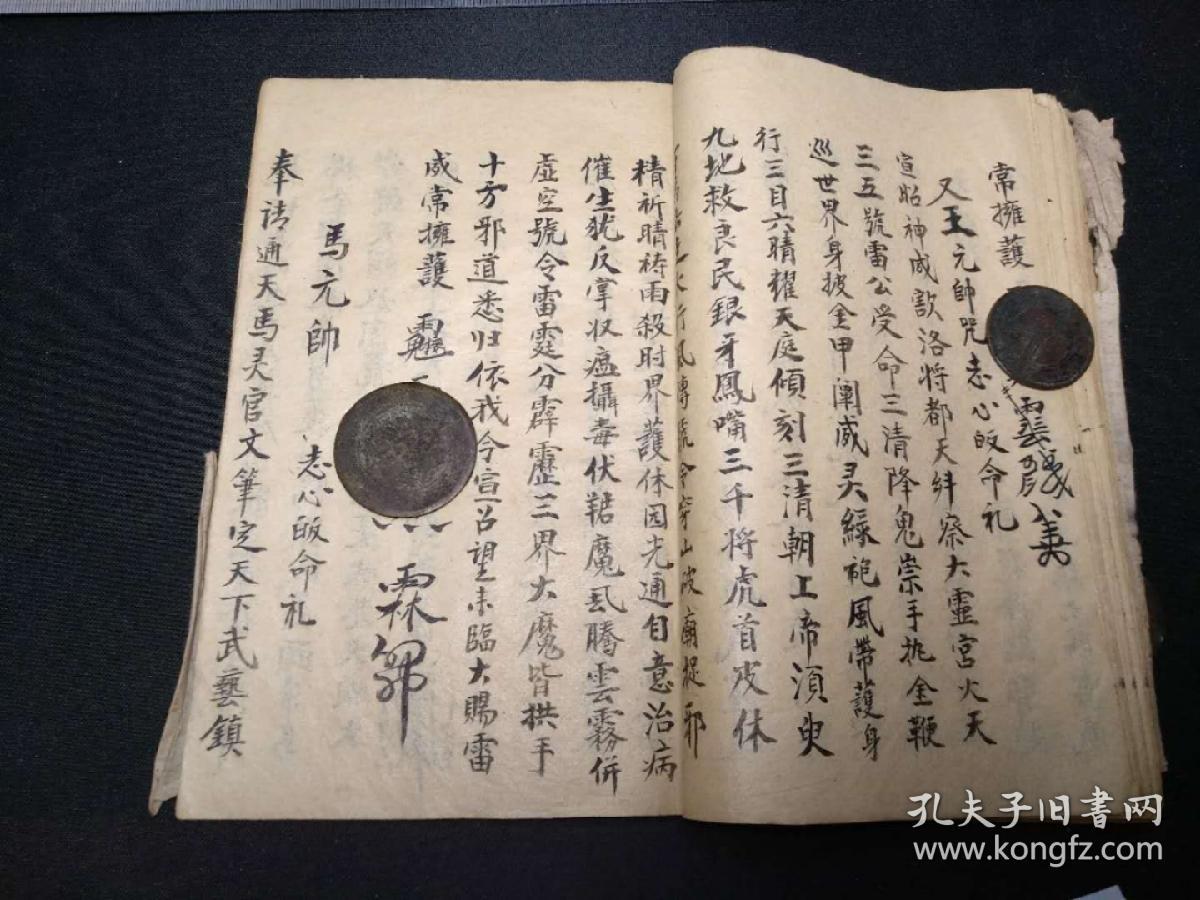 常擁護
雲
又王元帥咒志心皈命礼
宣昭神威歘洛将都天糾察大靈宫火天
三五號雷公受命三清降鬼祟手执金鞭
巡世界身披金甲闡威灵緑袍風帶護身
行三目六睛耀天庭傾刻三清朝上帝湏臾
九地救良民銀牙鳳嘴三千将虎首皮休
穿山破廟捉邪
精祈晴祷雨殺时界護休囯光通自意治病
催生犹反掌収瘟攝毒伏
魔 腾雲霧併
虚空號令雷霆分霹靂三界大魔皆拱手
十方邪道悉归依我今宣召望来臨大赐雷
威常擁護
霖
馬元帥
志心皈命礼
奉请通天馬灵官文筆定天下武藝鎮
孔夫子旧书网
www.kongfz.com